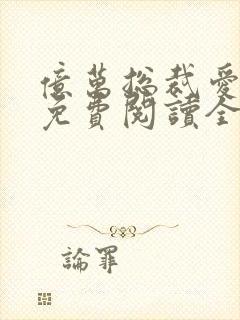 億萬總裁愛
免費閱讀全
論罪